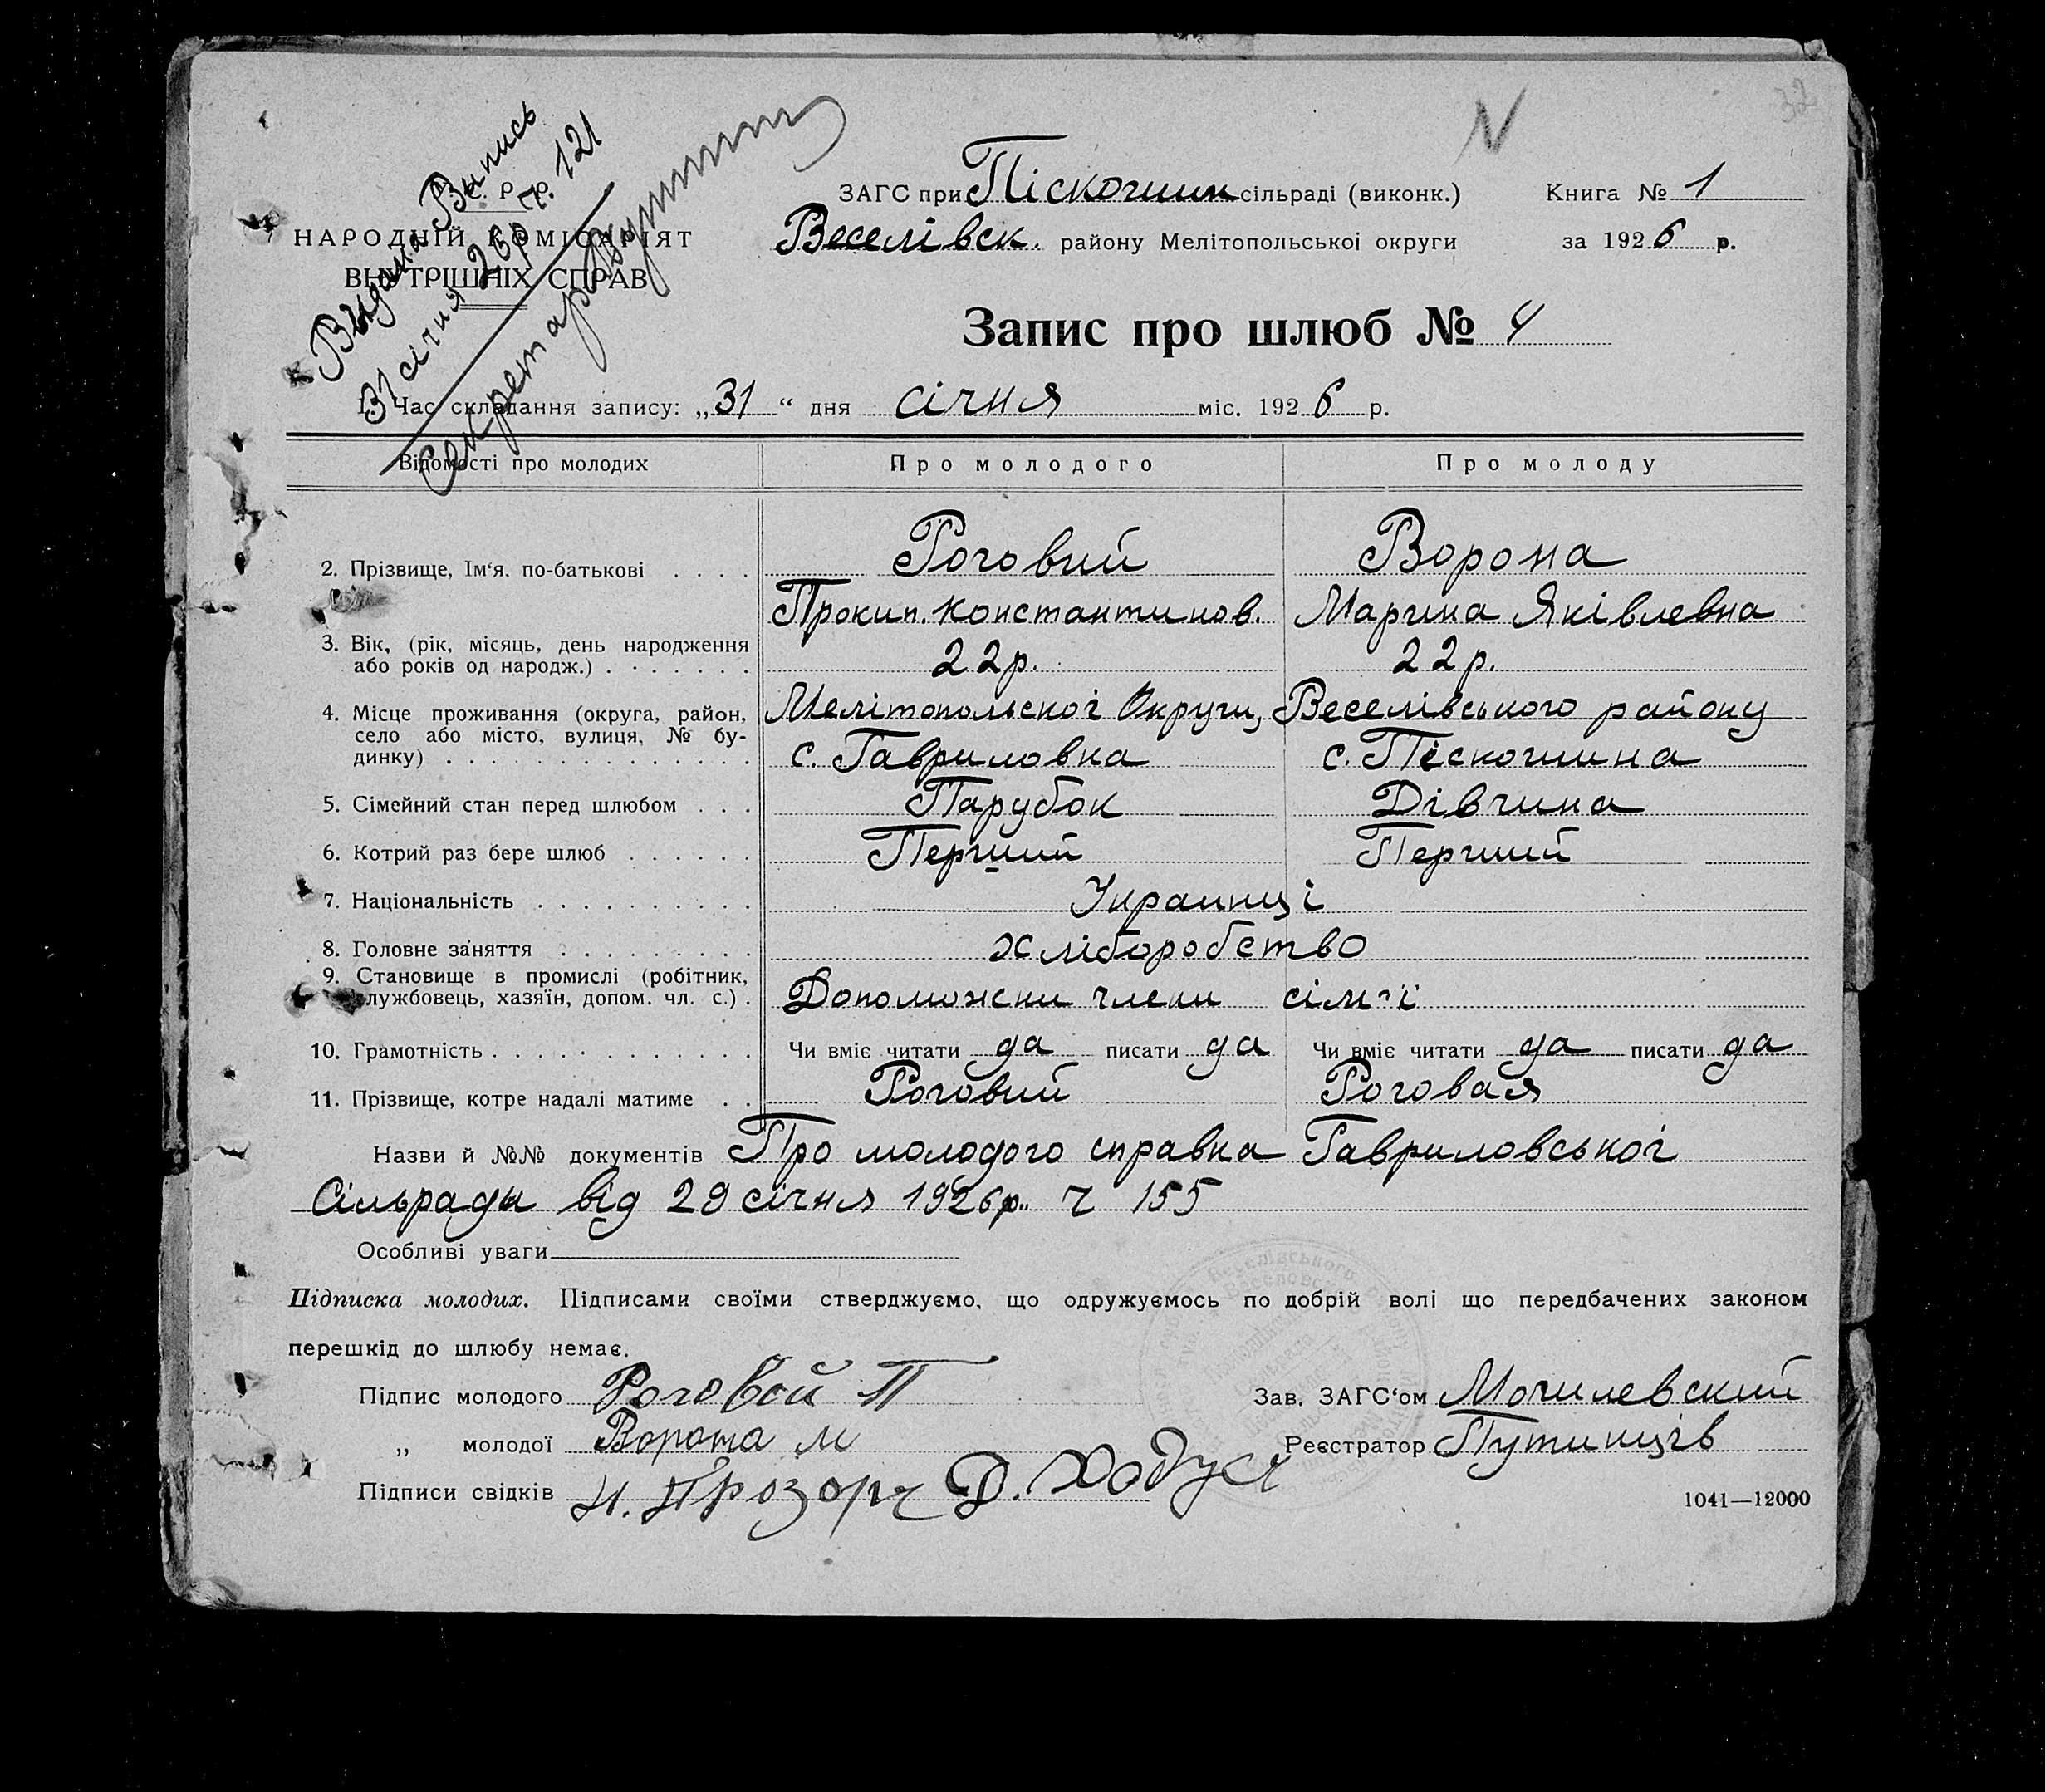 32
Видана Випись
31 січня 26р ч. 121
Секретар
НАРОДНІЙ КОМІСАРІЯТ
ВНУТРІШНІХ СПРАВ
ЗАГС при Піскошин сільраді (виконк.)
Веселівск. району Мелітопольської округи
Книга № 1
за 1926 р.
Запис про шлюб № 4
1. Час складання запису: „31“ дня січня міс. 1926 р.
Відомості про молодих Про молодого Про молоду
2. Прізвище, Ім‘я. по-батькові . . . . Роговий Ворона
Прокип. Константинов. Марина Яківлевна
3. Вік, (рік, місяць, день народження
або років од народж.) . . . . . . . 22р. 22р.
4. Місце проживання (округа, район, Мелітопольскої Округи, Веселівського району
село або місто, вулиця, № бу-
динку) . . . . . . . . . . . . . . с. Гавриловка с. Піскошина
5. Сімейний стан перед шлюбом . . . Парубок Дівчина
6. Котрий раз бере шлюб . . . . . . Перший Перший
7. Національність . . . . . . . . . . Украинці
8. Головне заняття . . . . . . . . . хліборобство
9. Становище в промислі (робітник,
службовець, хазяїн, допом. чл. с.) . Допоможни члени сім'ї
10. Грамотність . . . . . . . . . . . . Чи вміє читати да писати да Чи вміє читати да писати да
11. Прізвище, котре надалі матиме . . Роговий Роговая
Назви й №№ документів Про молодого справка Гавриловської
Сільради від 29 січня 1926р. ч 155
Особливі уваги
Підписка молодих. Підписами своїми стверджуємо, що одружуємось по добрій волі що передбачених законом
перешкід до шлюбу немає.
Підпис молодого Роговой П Зав. ЗАГС‘ом Могилевский
„ молодої Ворона М Реєстратор Путинців
Підписи свідків Н. Прозорч Д. Ходуся
1041—12000